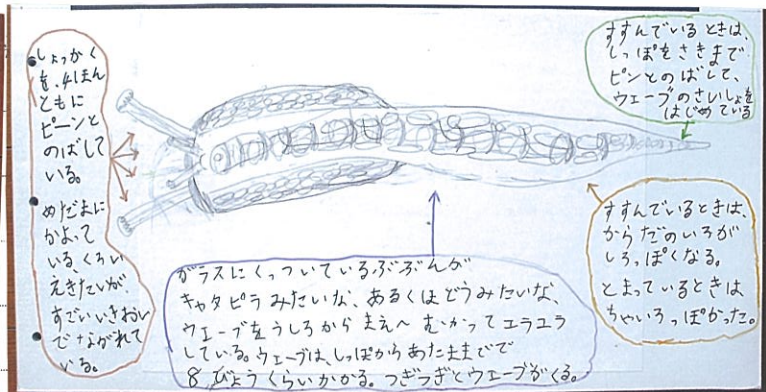 しょっかく
を、4ほん
ともに
ピーンと
のばして
いる。
めだまに
かよって
いる、くろい
えきたいが、
すごいいきおい
でながれて
いる。
すすんでいるときは、
しっぽをさきまで
ピンとのばして、
ウェーブのさいしょを
はじめている
すすんでいるときは、
からだのいろが
しろっぽくなる。
とまっているときは
ちゃいろっぽかった。
ガラスにくっついているぶぶんが
キャタピラみたいな、あるくほどうみたいな、
ウェーブをうしろからまえへむかってエラエラ
している。ウェーブは、しっぽからあたままでで
8びょうくらいかかる。つぎつぎとウェーブがくる。